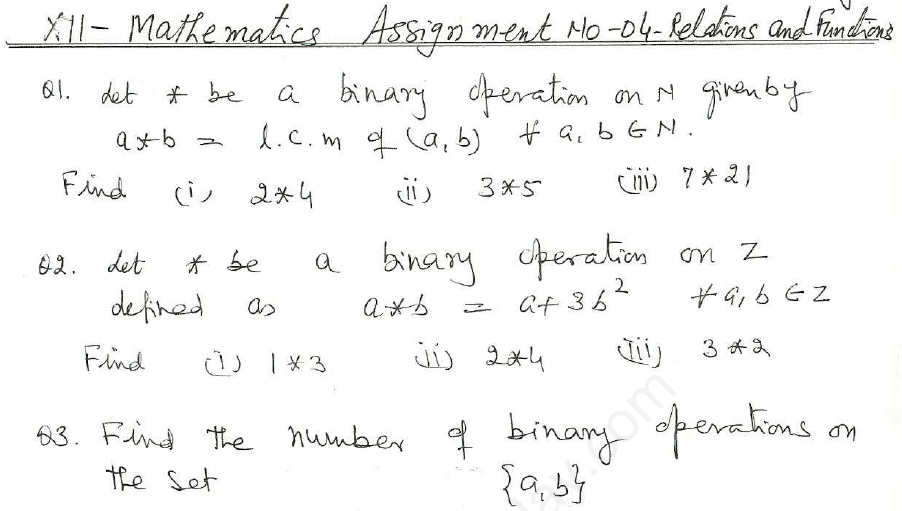 XII- Mathematics Assignment No-04-Relations and Functions
Q1. Let * be a binary operation on N given by
a*b = l.c.m of (a,b) ∀ a, b ∈ N.
Find (i) 2*4 (ii) 3*5 (iii) 7*21
Q2. Let * be a binary operation on Z
defined as a*b = a+3b² ∀ a, b ∈ Z
Find (i) 1*3 (ii) 2*4 (iii) 3*2
Q3. Find the number of binary operations on
the set {a,b}